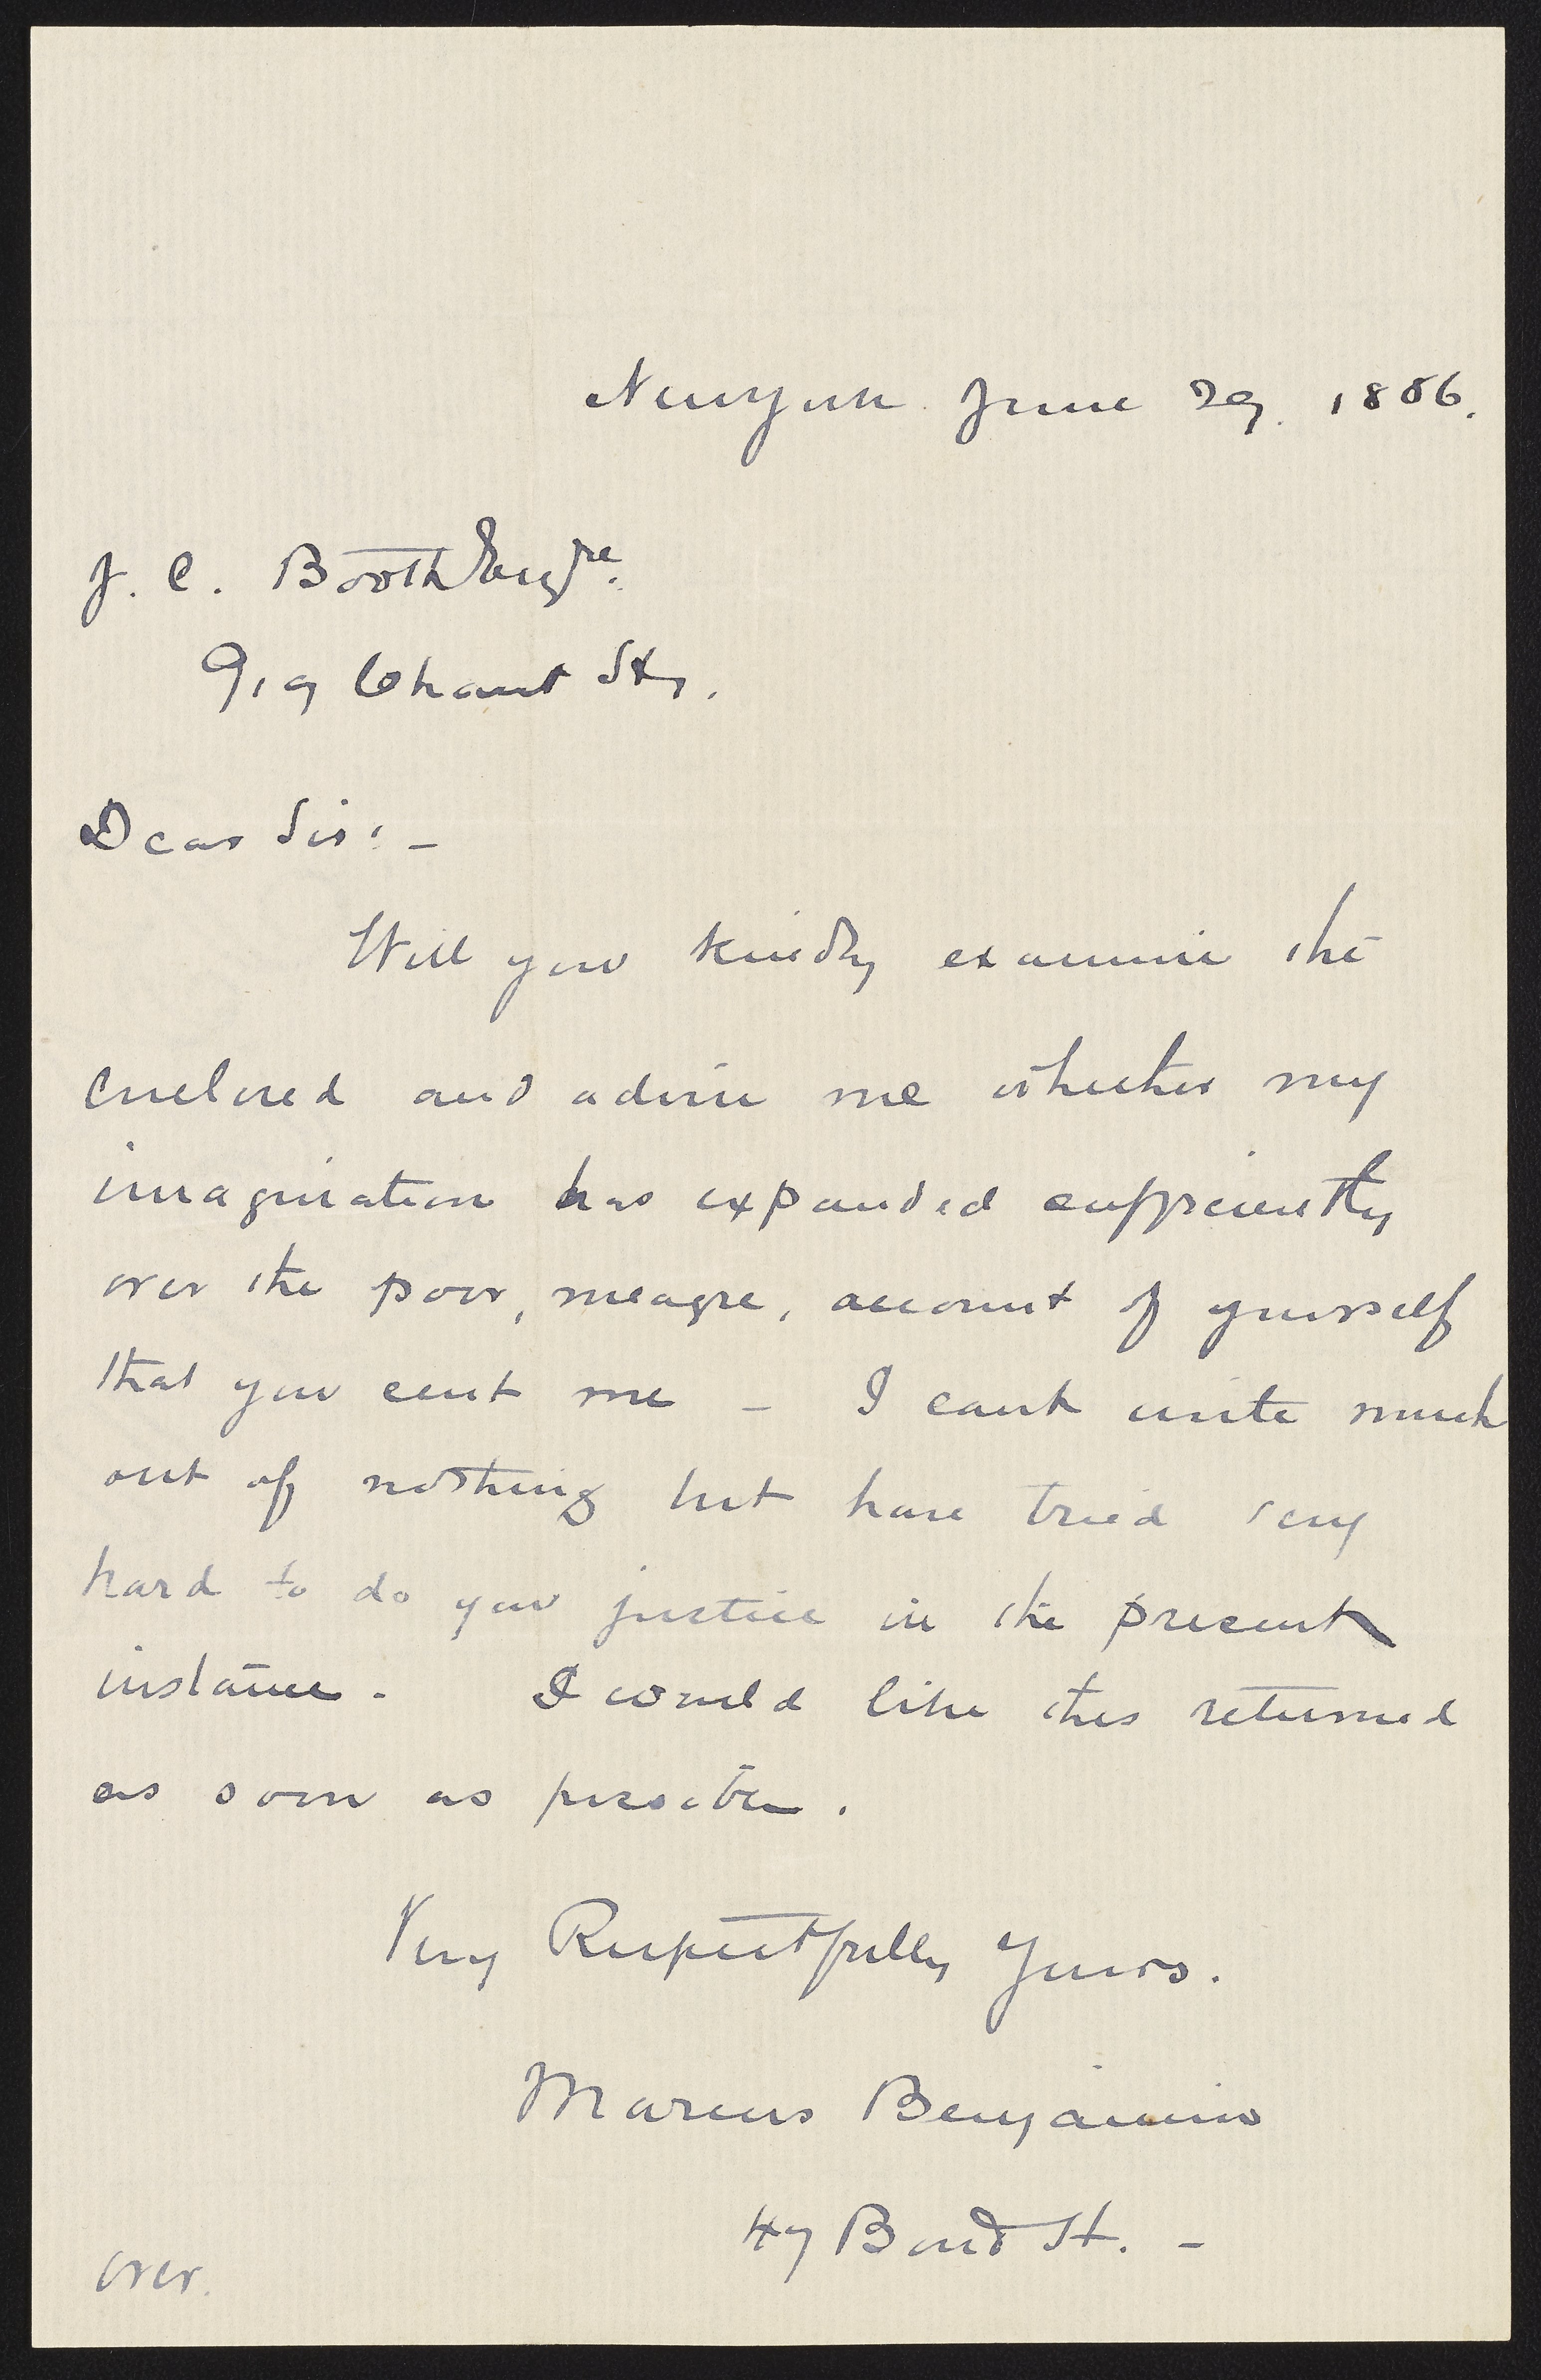 New York June 29. 1886.
J. C. Booth Esqre.
919 Chant St,
Dear Sir:-
Will you kindly examine the
enclosed and advise me whether my
imagination has expanded sufficiently
over the poor, meagre, account of yourself
that you sent me - I cant write much
out of nothing but have tried very
hard to do you justice in the present
instance. I would like this returned
as soon as possible.
Very Respectfully Yours.
Marcus Benjamin
47 Bond St. -
over.